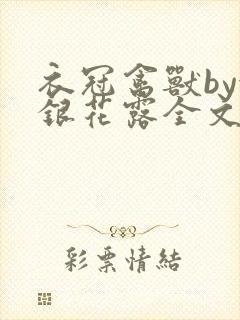 衣冠禽獸by
銀花露全文
彩票情結